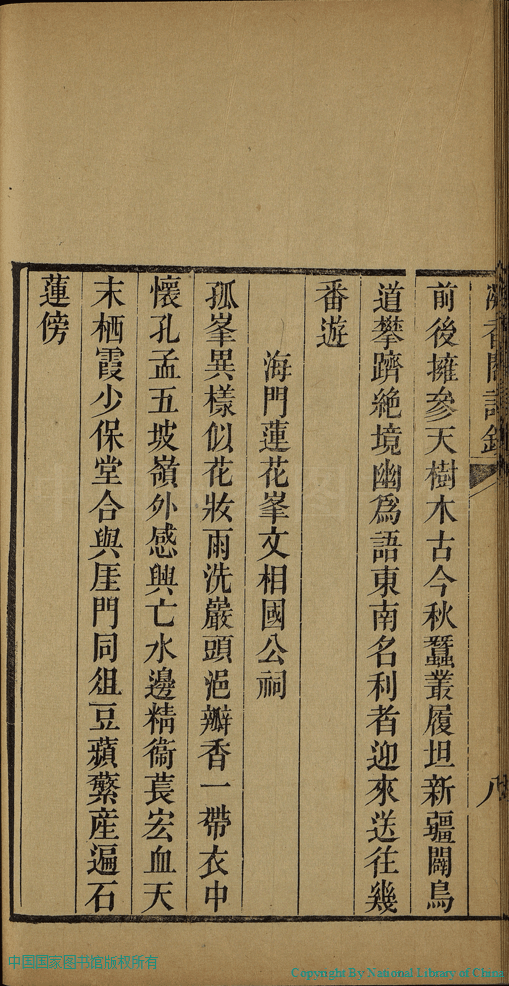 閣詩鈔
八
前後擁參天樹木古今秋蠶叢履坦新疆闢鳥
道攀躋絶境幽爲語東南名利者迎來送往幾
番遊
海門蓮花峯文相國公祠
孤峯異樣似花妝雨洗巖頭浥瓣香一帶衣中
懷孔孟五坡嶺外感興亡水邊精衞萇宏血天
末栖霞少保堂合與厓門同俎豆蘋蘩産遍石
蓮傍
中国国家图书馆版权所有
Copyright By National Library of China